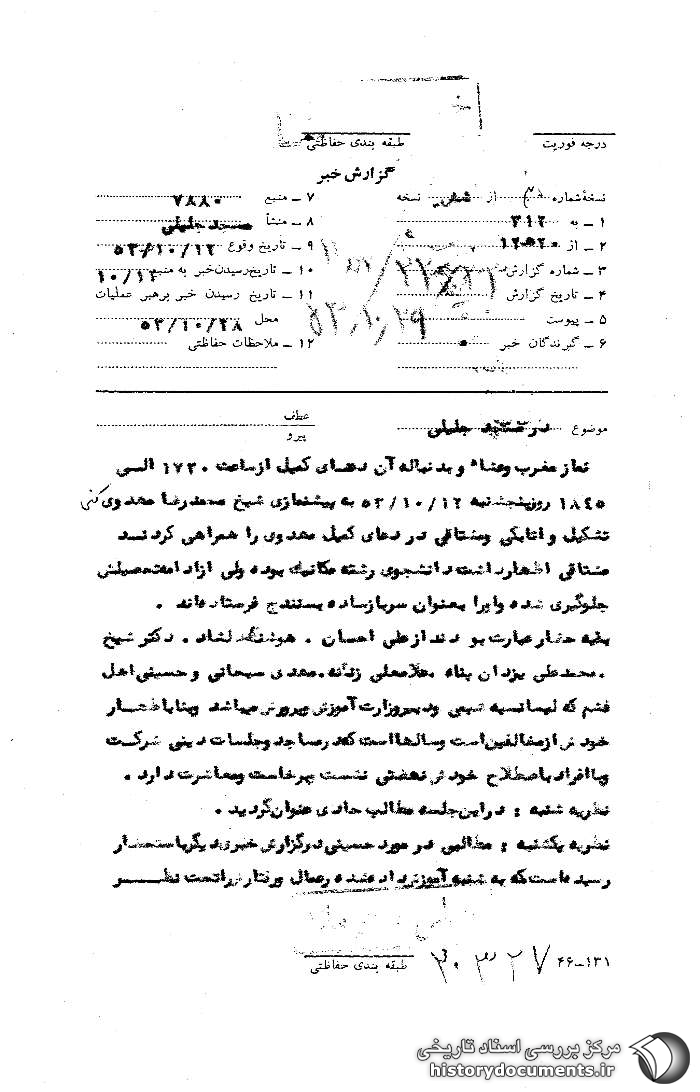 درجه فوریت
طبقه بندی حفاظتی
گزارش خبر
نسخهٔ شماره از شش نسخه
۱ ـ به ۳۱۲
۲ ـ از ۱۲ه۲۰
۳ ـ شماره گزارش
۴ ـ تاریخ گزارش ۵۳/۱۰/۲۹
۵ ـ پیوست
۶ ـ گیرندگان خبر
۷ ـ منبع ۷۸۸۰
۸ ـ منشأ مسجد جلیلی
۹ ـ تاریخ وقوع ۵۳/۱۰/۱۲
۱۰ ـ تاریخ رسیدن خبر به منبع ۱۰/۱۲
۱۱ ـ تاریخ رسیدن خبر برهبر عملیات
محل ۵۳/۱۰/۲۸
۱۲ ـ ملاحظات حفاظتی
موضوع در مسجد جلیلی
عطف
پیرو
نماز مغرب وعشاء و بدنباله آن دعای کمیل از ساعت ۱۷۳۰ الی
۱۸٤٥ روز پنجشنبه ۵۳/۱۰/۱۲ به پیشنمازی شیخ محمدرضا مهدوی کنی
تشکیل و اتابکی ومشتاقی در دعای کمیل مهدوی را همراهی کردند
مشتاقی اظهارداشت دانشجوی رشته مکانیک بوده ولی از ادامه تحصیلش
جلوگیری شده واورا بعنوان سربازساده بسنندج فرستاده‌اند .
بقیه حضار عبارت بودند از علی احسان . هوشنگ دلشاد . دکتر شیخ
.محمدعلی یزدان پناه .غلامعلی .مهدی سبحانی و حسینی اهل
قشم که لیسانسیه شیمی ودبیر وزارت آموزش وپرورش میباشد وبنا باظهار
خودش از مخالفین است وسالها است که در مساجد وجلسات دینی شرکت
وباافراد باصطلاح خودش نهضتی نشست وبرخاست ومعاشرت دارد .
نظریه شنبه : در این جلسه مطالب حادی عنوان نگردید .
نظریه یکشنبه : مطالبی در مورد حسینی در گزارش خبری دیگر باستحضار
رسیده است که به شنبه آموزش داده شده رعمال ورفتارش را تحت نظـــر
طبقه بندی حفاظتی
۳۰۳۲۷
۴۶-۱۳۱
مرکز بررسی اسناد تاریخی
historydocuments.ir